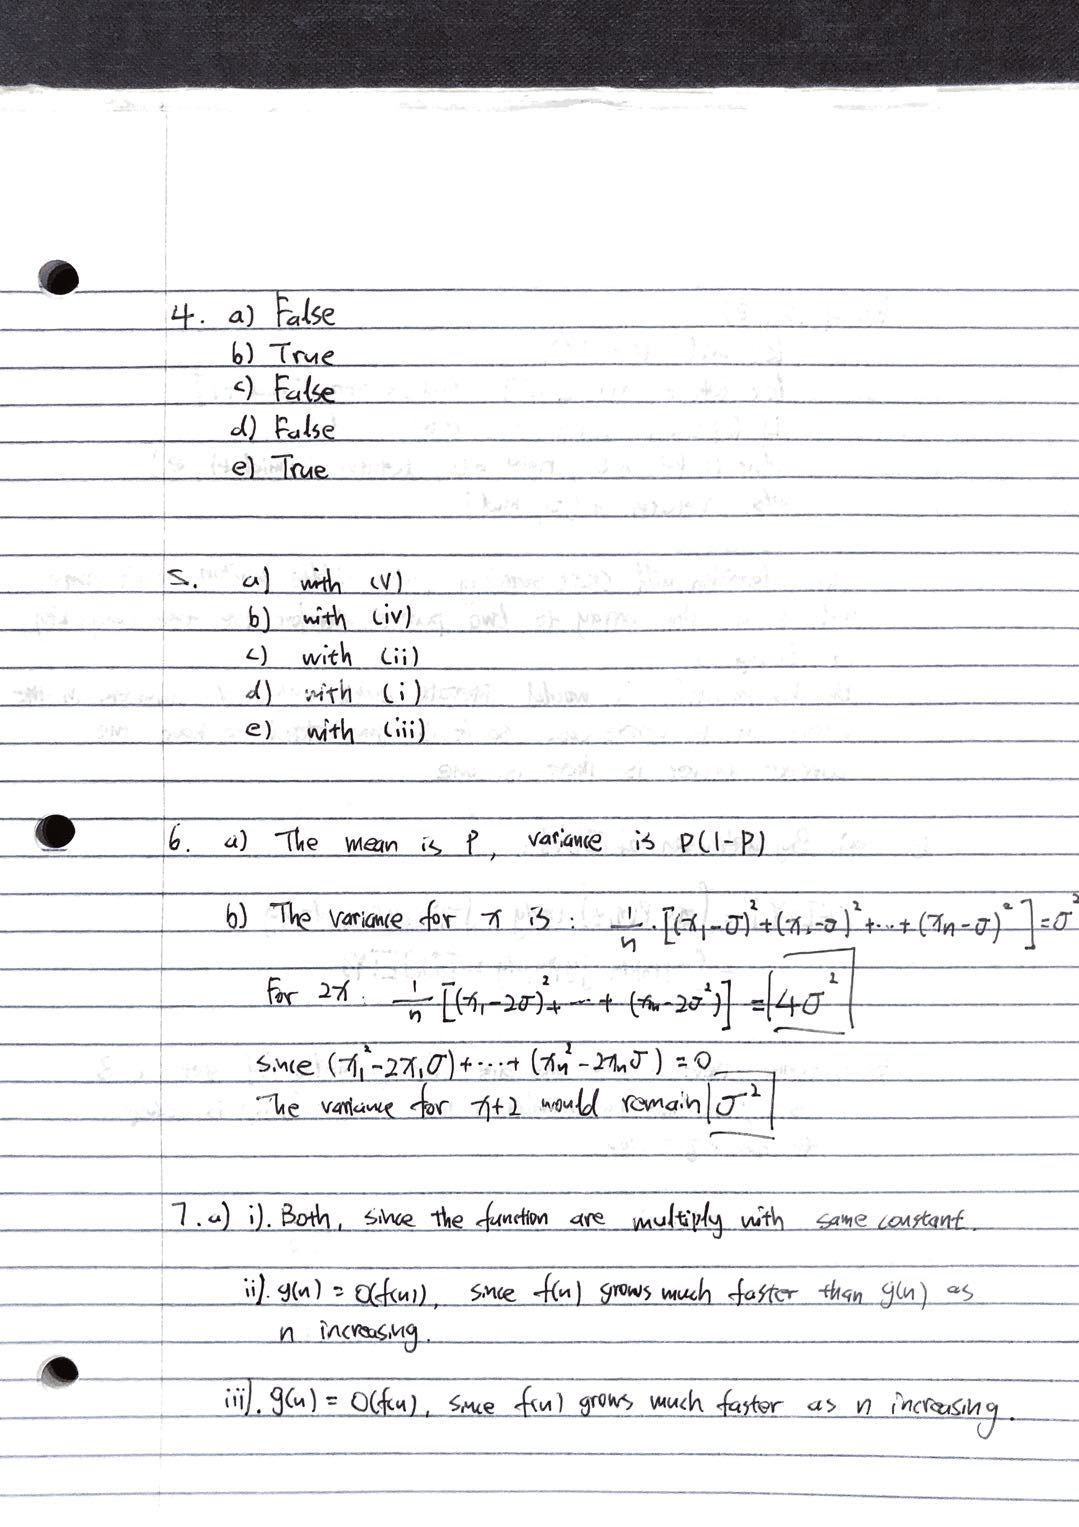 4. a) False
b) True
c) False
d) False
e) True
5. a) with (v)
b) with (iv)
c) with (ii)
d) with (i)
e) with (iii)
6. a) The mean is P, variance is P(1-P)
b) The variance for x is : 1/n · [(x₁-σ)²+(x₂-σ)²+...+(xn-σ)²] = σ²
For 2x: 1/n [(x₁-2σ)²+ ... + (xn-2σ²)] = 4σ²
since (x₁²-2x₁σ)+...+(xn²-2xnσ) = 0
The variance for x+2 would remain σ²
7. a) i). Both, since the function are multiply with same constant.
ii). g(n) = O(f(n)), since f(n) grows much faster than g(n) as
n increasing.
iii). g(n) = O(f(n), since f(n) grows much faster as n increasing.